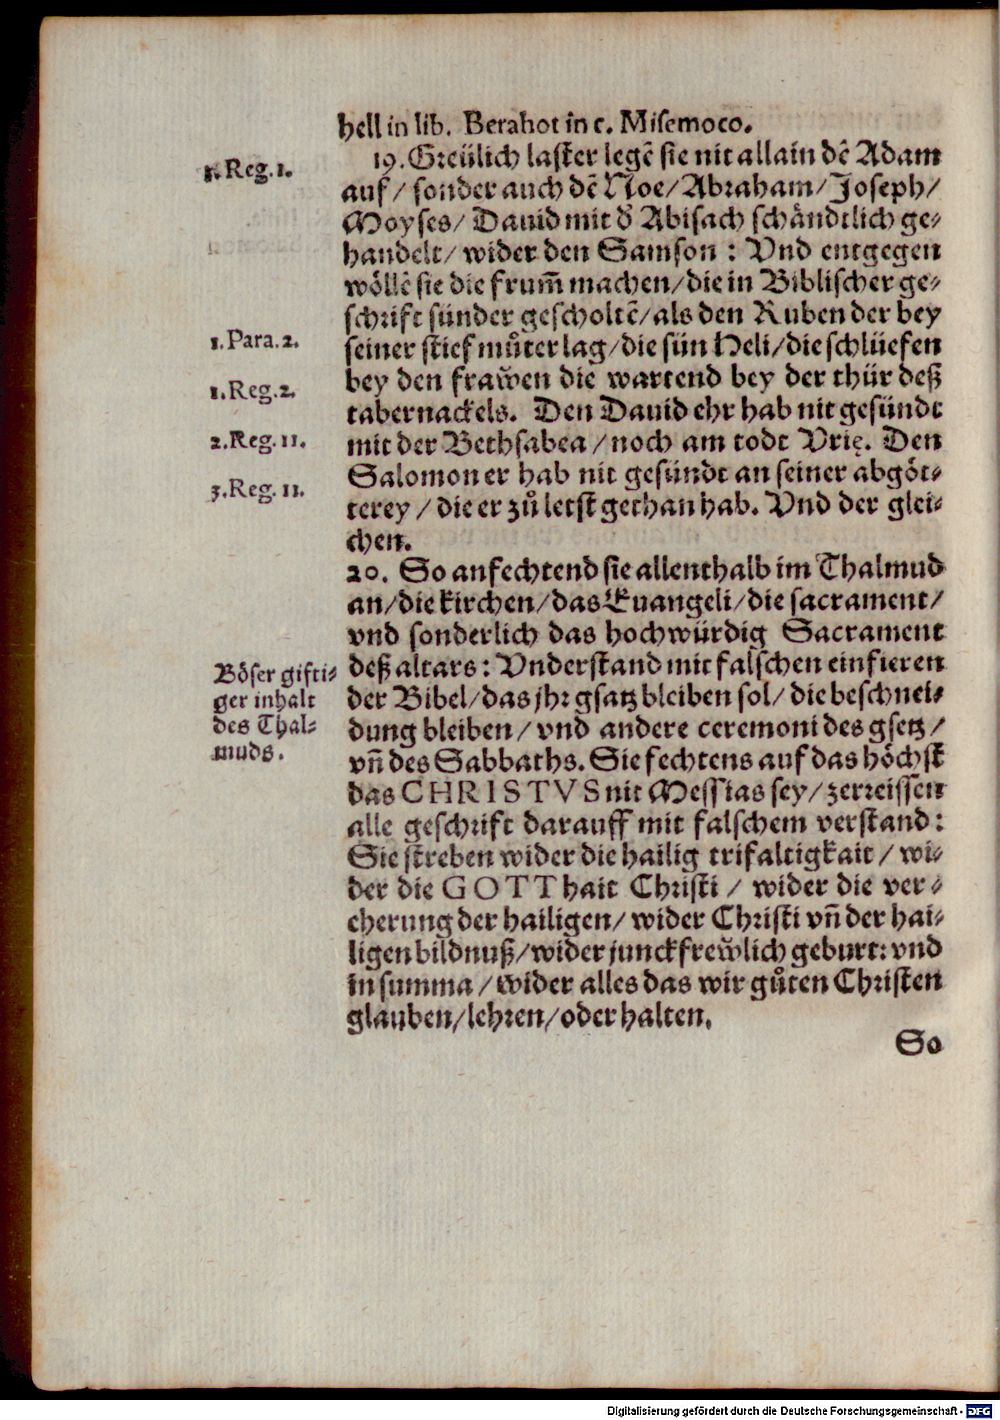 hell in lib. Berahot in c. Misemoco.
19. Greülich laster legē sie nit allain dē Adam
auf / sonder auch dē Noe / Abraham / Joseph /
Moyses / Dauid mit d̄ Abisach schändtlich ge-
handelt / wider den Samson : Vnd entgegen
wöllē sie die frum̄ machen / die in Biblischer ge-
schrift sünder gescholtē / als den Ruben der bey
seiner stiefmůter lag / die sün Heli / die schlüefen
bey den frawen die wartend bey der thür deß
tabernackels. Den Dauid ehr hab nit gesündt
mit der Bethsabea / noch am todt Vrię. Den
Salomon er hab nit gesündt an seiner abgöt-
terey / die er zů letst gethan hab. Vnd der glei-
chen.
20. So anfechtend sie allenthalb im Thalmud
an / die kirchen / das Euangeli / die sacrament /
vnd sonderlich das hochwürdig Sacrament
deß altars : Vnderstand mit falschen einfieren
der Bibel / das jhr gsatz bleiben sol / die beschnei-
dung bleiben / vnd andere ceremoni des gsetz /
vn̄ des Sabbaths. Sie fechtens auf das höchst
das CHRISTVS nit Messias sey / zerreissen
alle geschrift darauff mit falschem verstand :
Sie streben wider die hailig trifaltigkait / wi-
der die GOTThait Christi / wider die ver-
eherung der hailigen / wider Christi vn̄ der hai-
ligen bildnuß / wider junckfrewlich geburt : vnd
in summa / wider alles das wir gůten Christen
glauben / lehren / oder halten.
So
3. Reg. 1.
1. Para. 2.
1. Reg. 2.
2. Reg. 11.
3. Reg. 11.
Böser gifti-
ger inhalt
des Thal-
muds.
Digitalisierung gefördert durch die Deutsche Forschungsgemeinschaft - DFG